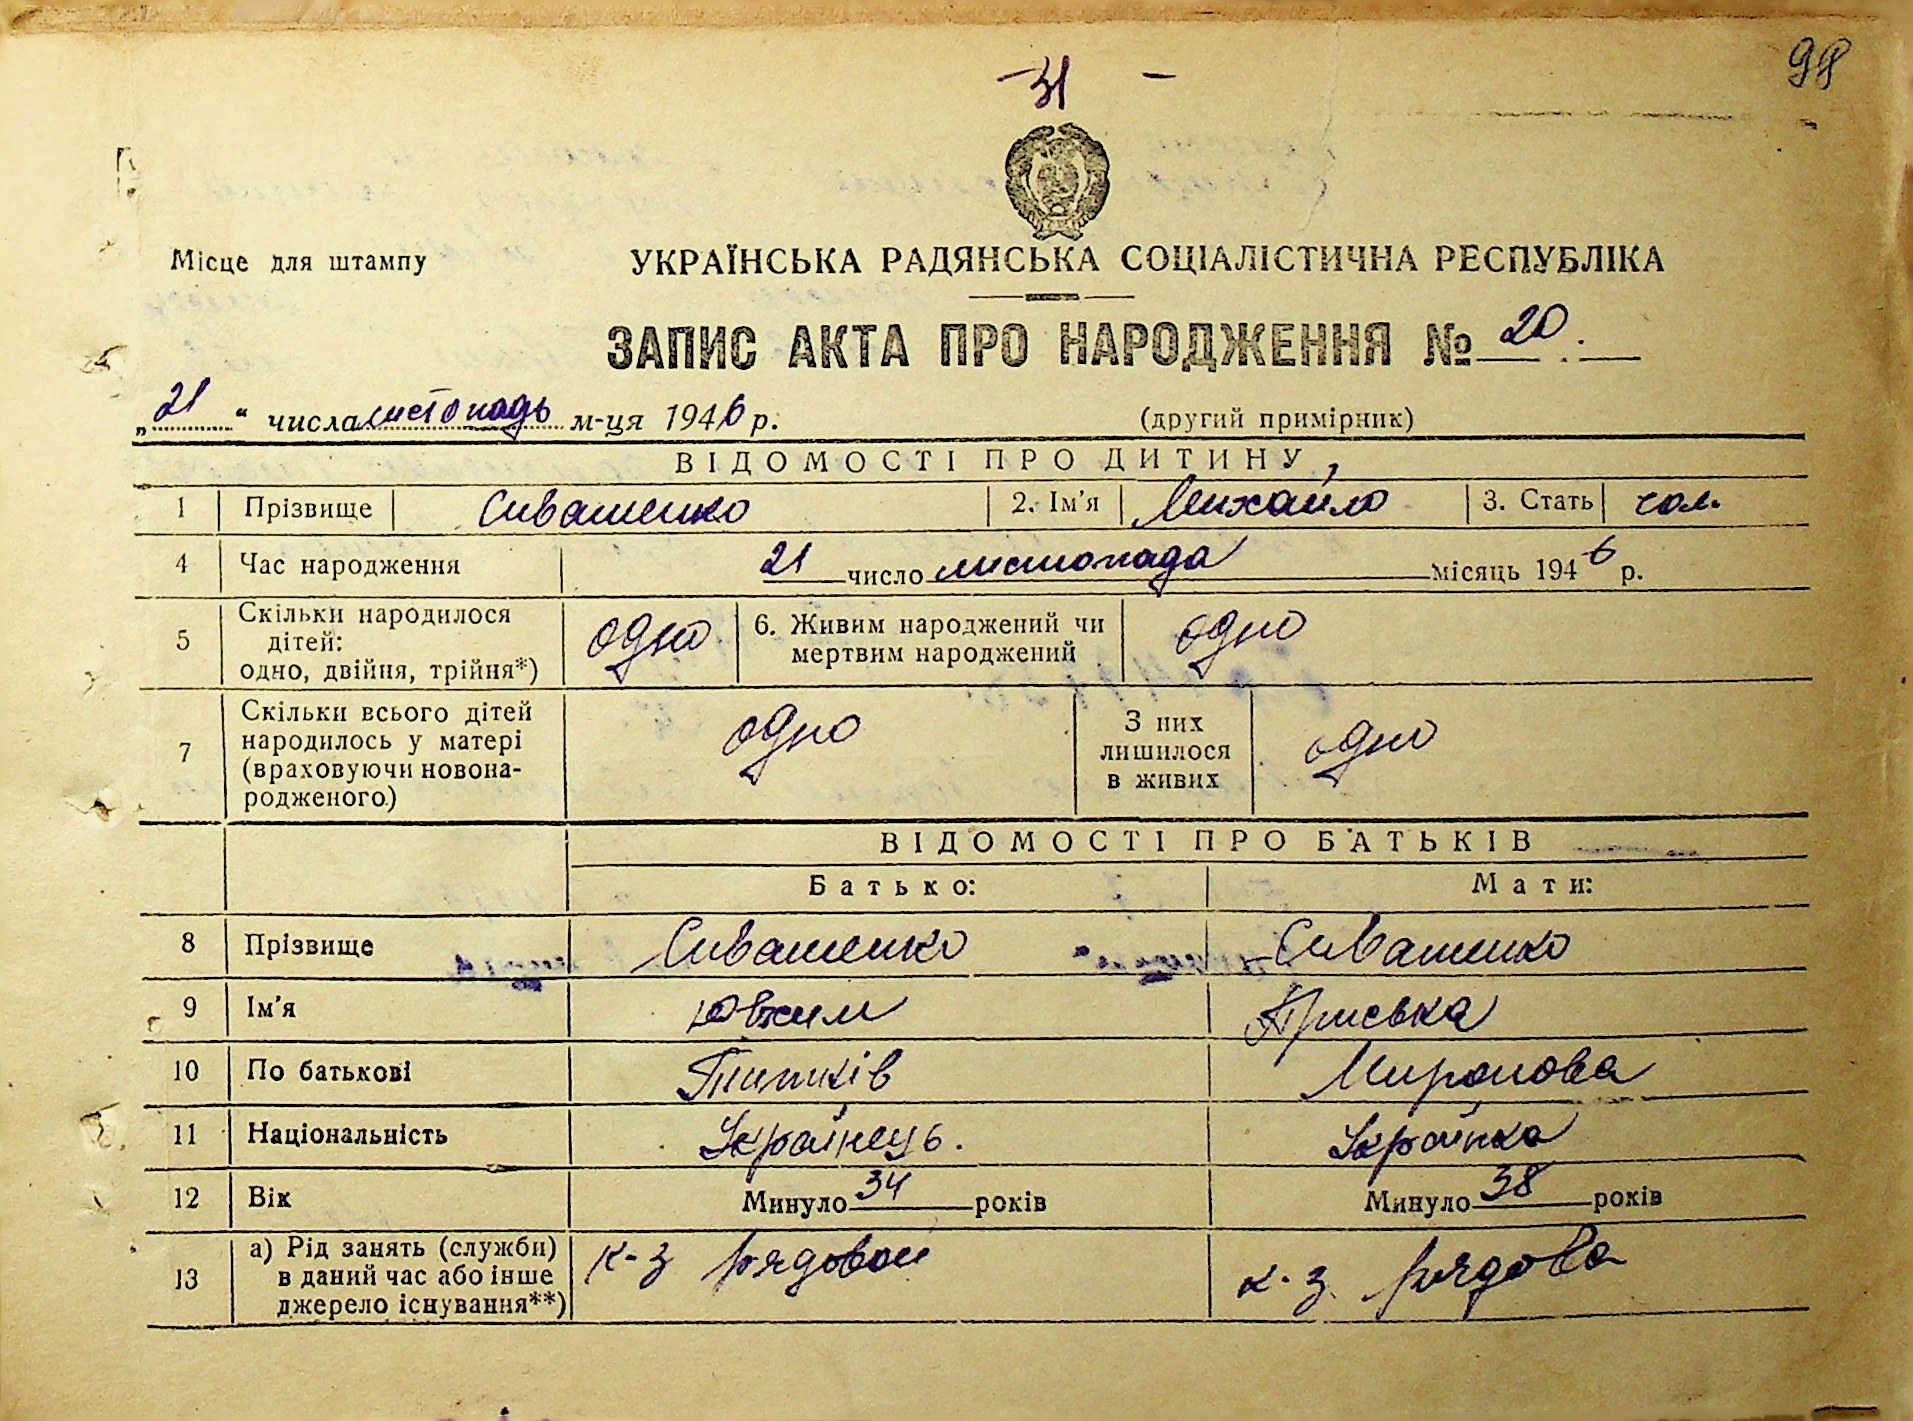 31 -
98
Місце для штампу
УКРАЇНСЬКА РАДЯНСЬКА СОЦІАЛІСТИЧНА РЕСПУБЛІКА
ЗАПИС АКТА ПРО НАРОДЖЕННЯ № 20.
„21“ числа листопадь м-ця 1946 р.
(другий примірник)
ВІДОМОСТІ ПРО ДИТИНУ
1 Прізвище Сивашенко 2. Ім'я Михайло 3. Стать чол.
4 Час народження 21 число листопада місяць 1946 р.
5 Скільки народилося дітей: одно, двійня, трійня*) одно 6. Живим народжений чи мертвим народжений одно
7 Скільки всього дітей народилось у матері (враховуючи новона-родженого) одно З них лишилося в живих одно
ВІДОМОСТІ ПРО БАТЬКІВ
Батько: Мати:
8 Прізвище Сивашенко Сивашенко
9 Ім'я ЮвхимПриська
10 По батькові Миронова
11 Національність Українець. Українка
12 Вік Минуло 34 років Минуло 38 років
13 а) Рід занять (служби) в даний час або інше джерело існування**) к-з рядовой к-з. рядова